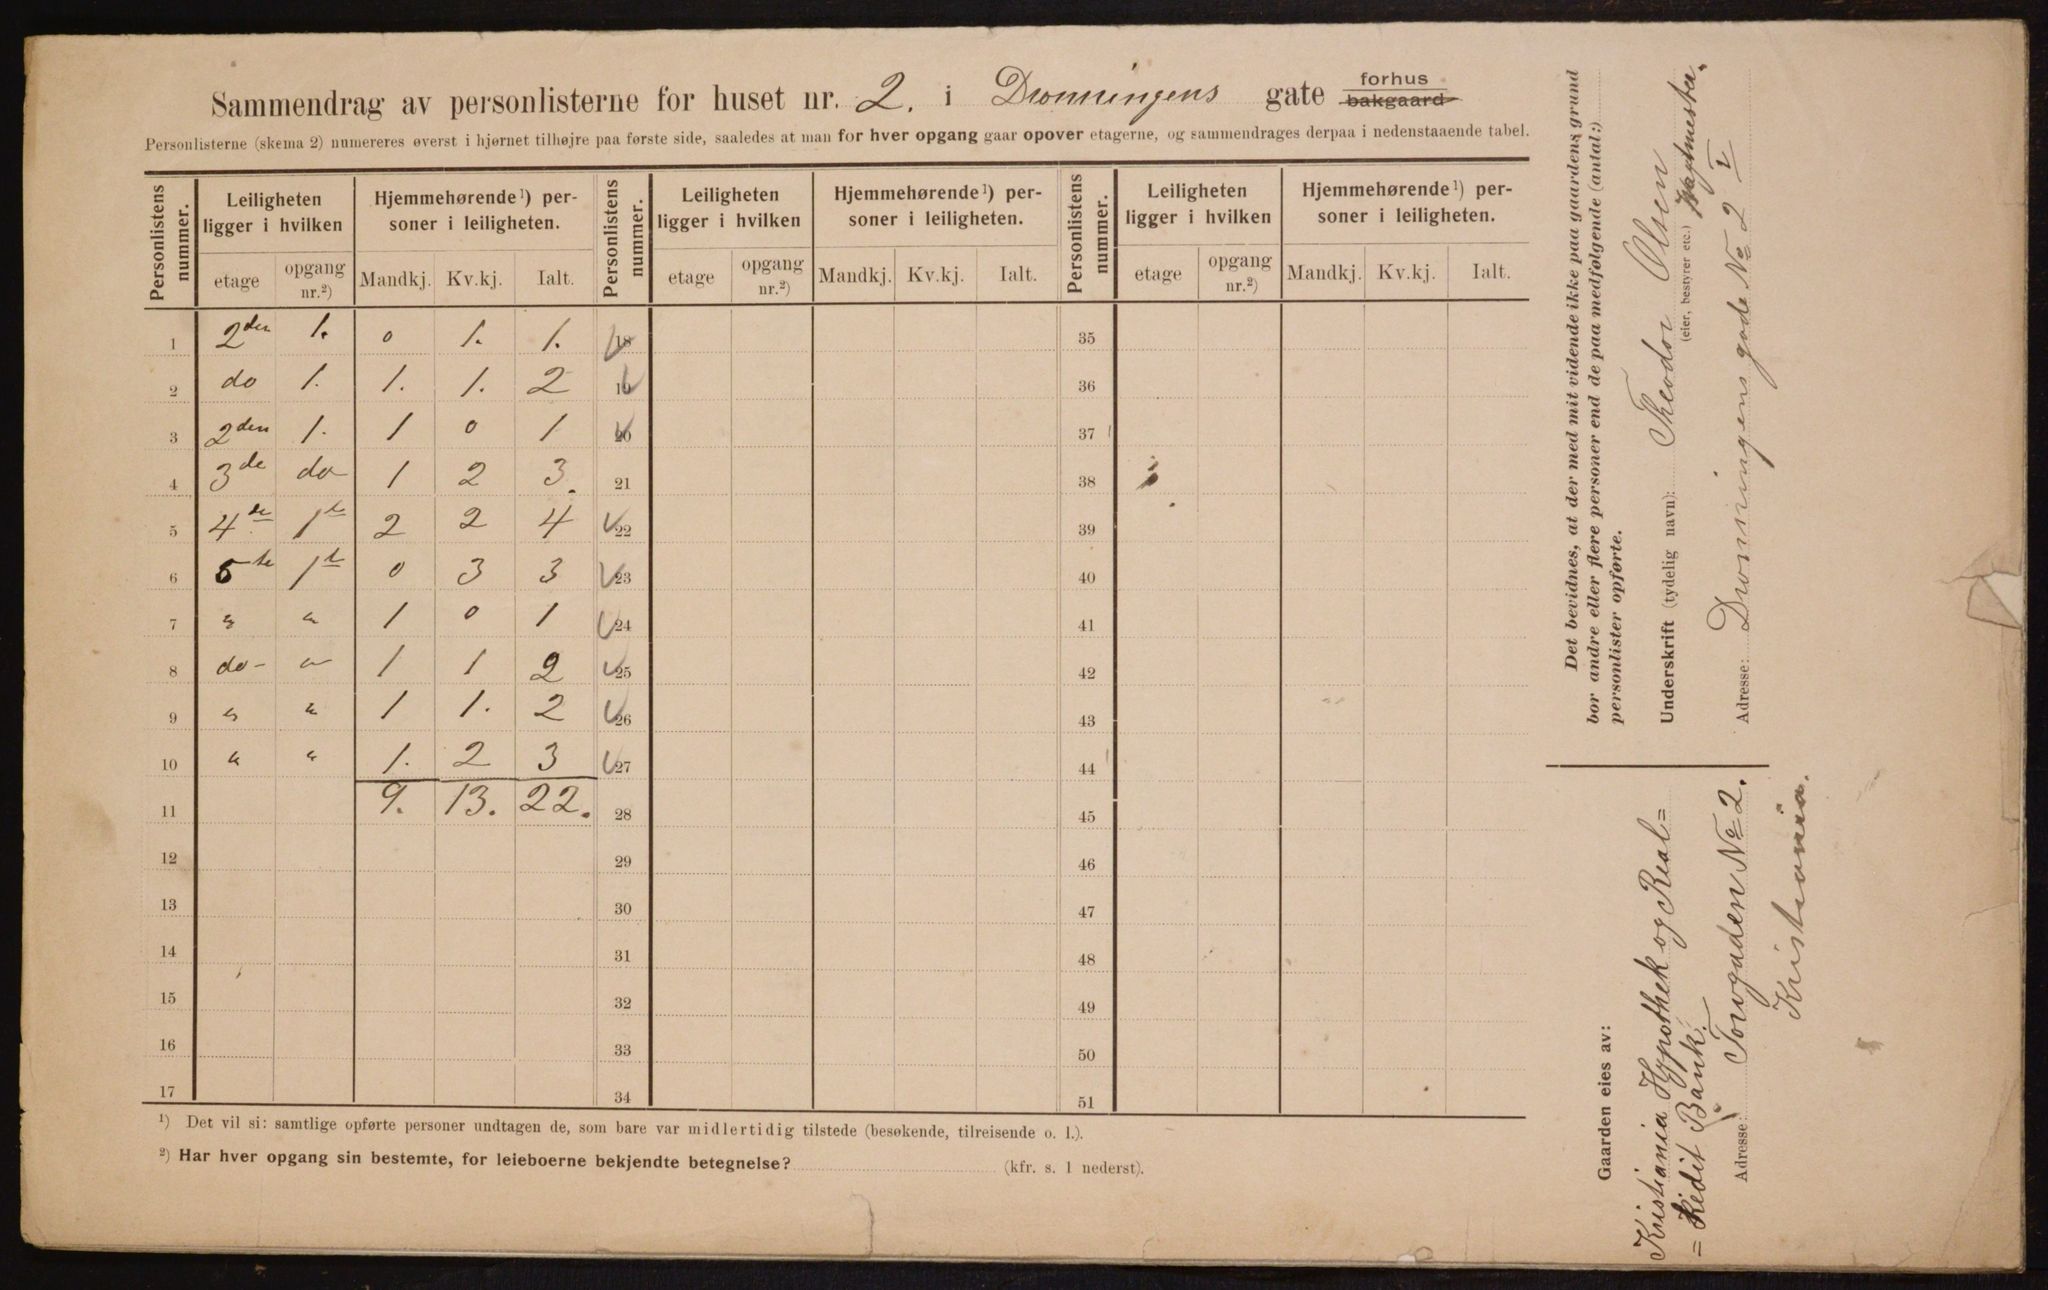 Sammendrag av personlisterne for huset nr. 2. i Dronningens gate forhus bakgaard
Personlisterne (skema 2) numereres øverst i hjørnet tilhøjre paa første side, saaledes at man for hver opgang gaar opover etagerne, og sammendrages derpaa i nedenstaaende tabel.
Personlistens nummer. Leiligheten ligger i hvilken Hjemmehørende¹) personer i leiligheten. Personlistens nummer. Leiligheten ligger i hvilken Hjemmehørende¹) personer i leiligheten. Personlistens nummer. Leiligheten ligger i hvilken Hjemmehørende¹) personer i leiligheten.
etage opgang nr.²) Mandkj. Kv.kj. Ialt. etage opgang nr.²) Mandkj. Kv.kj. Ialt. etage opgang nr.²) Mandkj. Kv.kj. Ialt.
1 2den 1. 0 1. 1. 18 35
2 do 1. 1. 1. 2 19 36
3 2den 1. 1 0 1 20 37
4 3de do 1 2 3. 21 38
5 4de 1te 2 2 4 22 39
6 5te 1te 0 3 3 23 40
7 " " 1 0 1 24 41
8 do- " 1 1 2 25 42
9 " " 1 1. 2 26 43
10 " " 1. 2 3 27 44
11 9. 13. 22. 28 45
12 29 46
13 30 47
14 31 48
15 32 49
16 33 50
17 34 51
¹) Det vil si: samtlige opførte personer undtagen de, som bare var midlertidig tilstede (besøkende, tilreisende o. l.).
²) Har hver opgang sin bestemte, for leieboerne bekjendte betegnelse? (kfr. s. 1 nederst).
Det bevidnes, at der med mit vidende ikke paa gaardens grund
bor andre eller flere personer end de paa medfølgende (antal:)
personlister opførte.
Underskrift (tydelig navn): Theodor Olsen
(eier, bestyrer etc.)
Adresse: Dronningens gade No 2 V
Gaarden eies av:
Kristiania Hypothek og Real=
=Kredit Bank.
Adresse: Torvgaden No 2.
Kristiania.